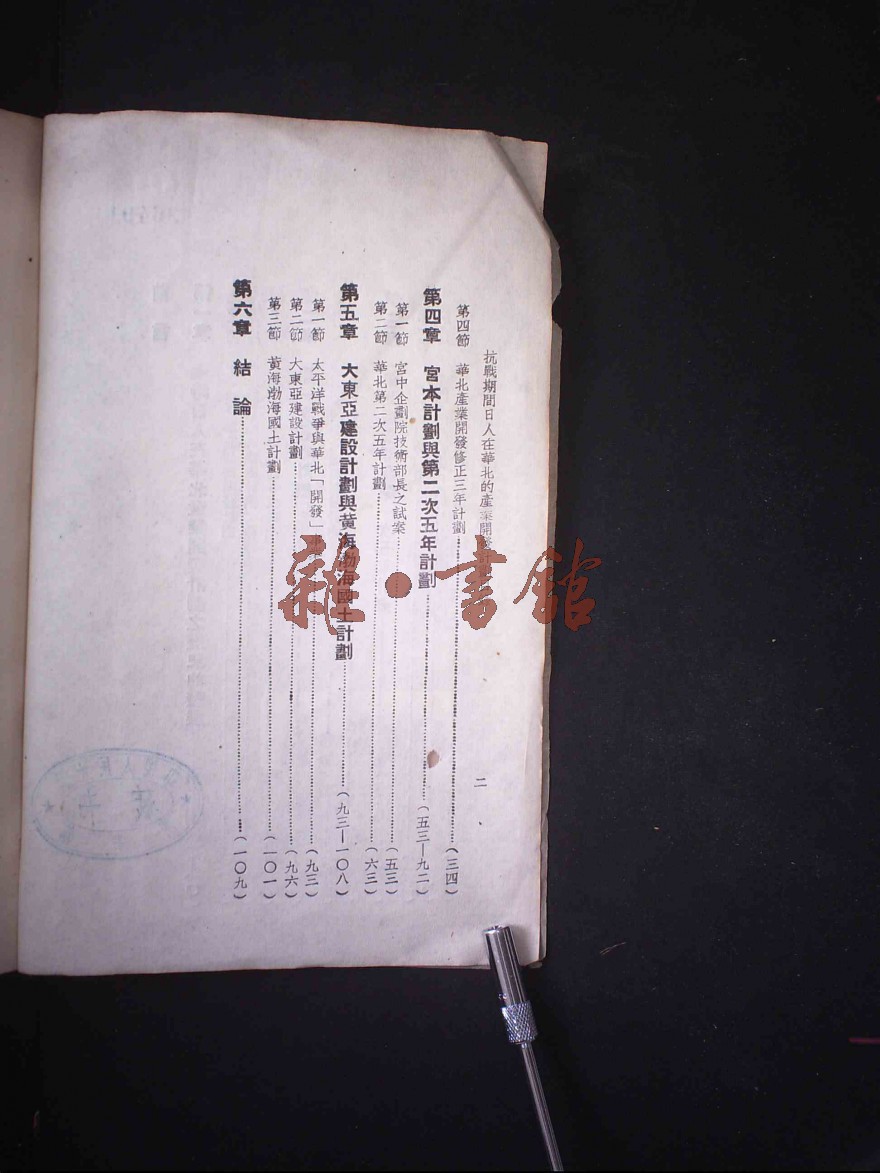 抗戰期間日人在華北的產業開發計劃
二
第四節 華北產業開發修正三年計劃……(三四)
第四章 宮本計劃與第二次五年計劃……(五三—九二)
第一節 宮中企劃院技術部長之試案……(五三)
第二節 華北第二次五年計劃……(六三)
第五章 大東亞建設計劃與黃海渤海國土計劃……(九三—一〇八)
第一節 太平洋戰爭與華北「開發」……(九三)
第二節 大東亞建設計劃……(九六)
第三節 黃海渤海國土計劃……(一〇一)
第六章 結論……(一〇九)
雜·書館